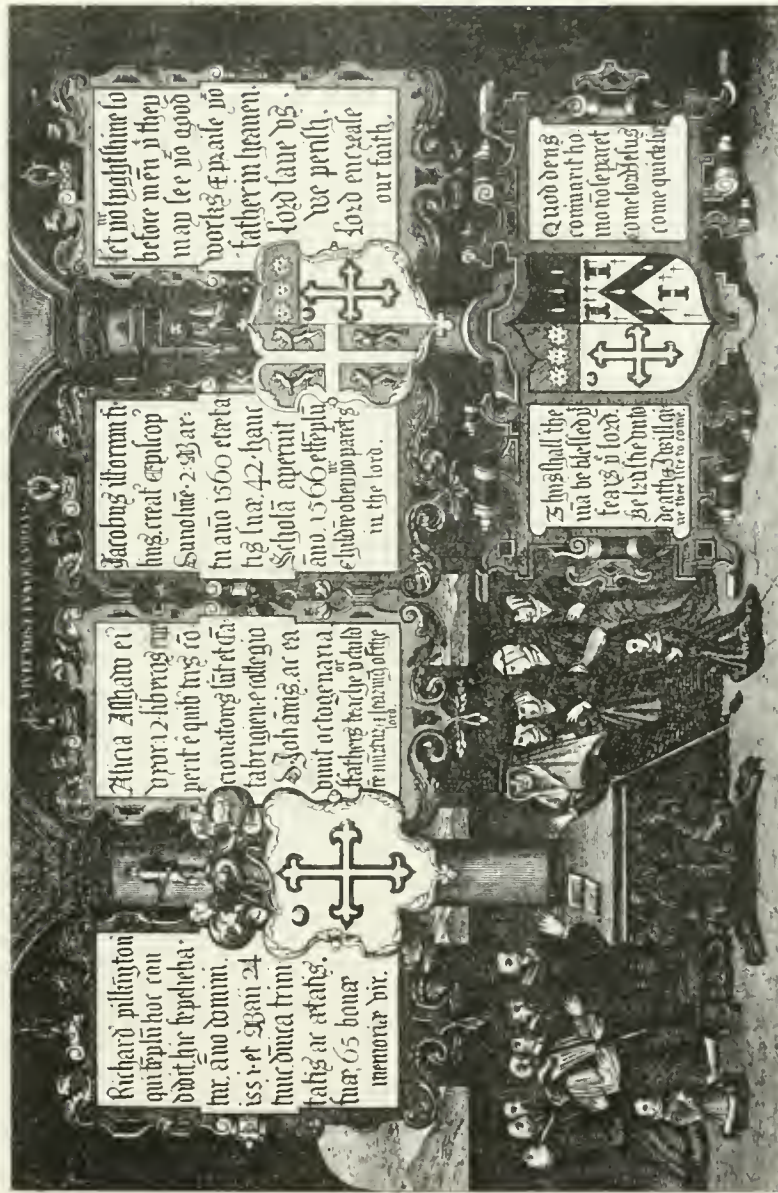 Richard pilkington
qui teplū hoc con
didit hic sepeleba-
tur, āno domini.
1551 et Maii 24
huic dnica trini
tatis ac ætatis.
suæ, 65 bonæ
memoriæ vir.
Alicia Asshaw ei
vxor 12 liberos
perit è quib' tres cō
cionatores sūt et Cā-
tabrigien. e collegio
S Johānis, ac ea
vivit octogenaria
ffathers teache yor child
re nurtur & learning of the
lord.
Jacobus illorum fi-
lius, creat' Episcop'
Dunolmē. 2. Mar-
tii año 1560 et æta
tis suæ, 42. hanc
Scholā aperuit
āno. 1566 et tēplū
Childrē obey yor parēts
in the lord.
Let yor lyght shine so
before mēn yt they
may see yor good
works & praise yor
father in heaven.
Lord save vs.
we perish.
Lord encrease
our faith.
Thus shall the
mā be blessed yt
fears ye lord.
Be lzu fide vnto
death & I will gi-
ve thee life to come.
Quod deus
coniunxit ho
mo nō separet
come lord Iesus
come quickly